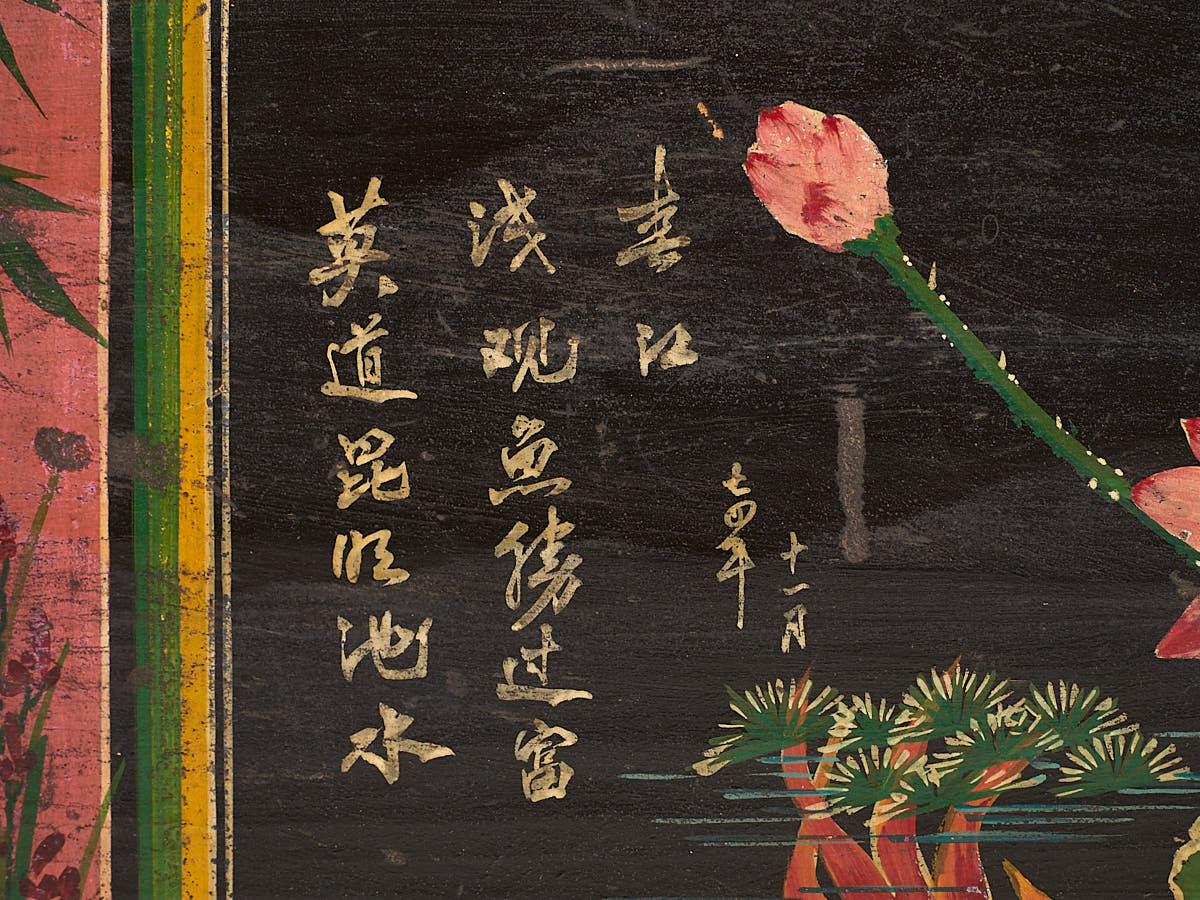 莫道昆明池水
淺观鱼勝过富
春江
七四年
十一月